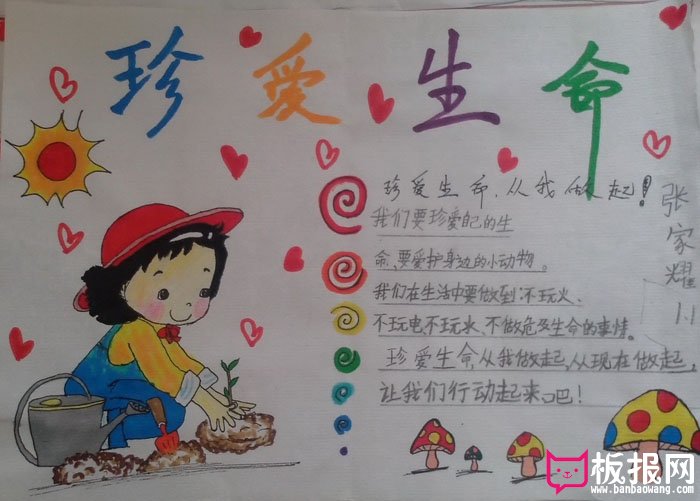 珍爱生命
珍爱生命,从我做起!
我们要珍爱自的生
命、要爱护身边的小动物。
我们在生活中要做到:不玩火、
不玩电不玩水、不做危及生命的事情。
珍爱生命,从我做起,从现在做起,
让我们行动起来吧!
张家耀 1.1
板报网
www.banbaowang.com